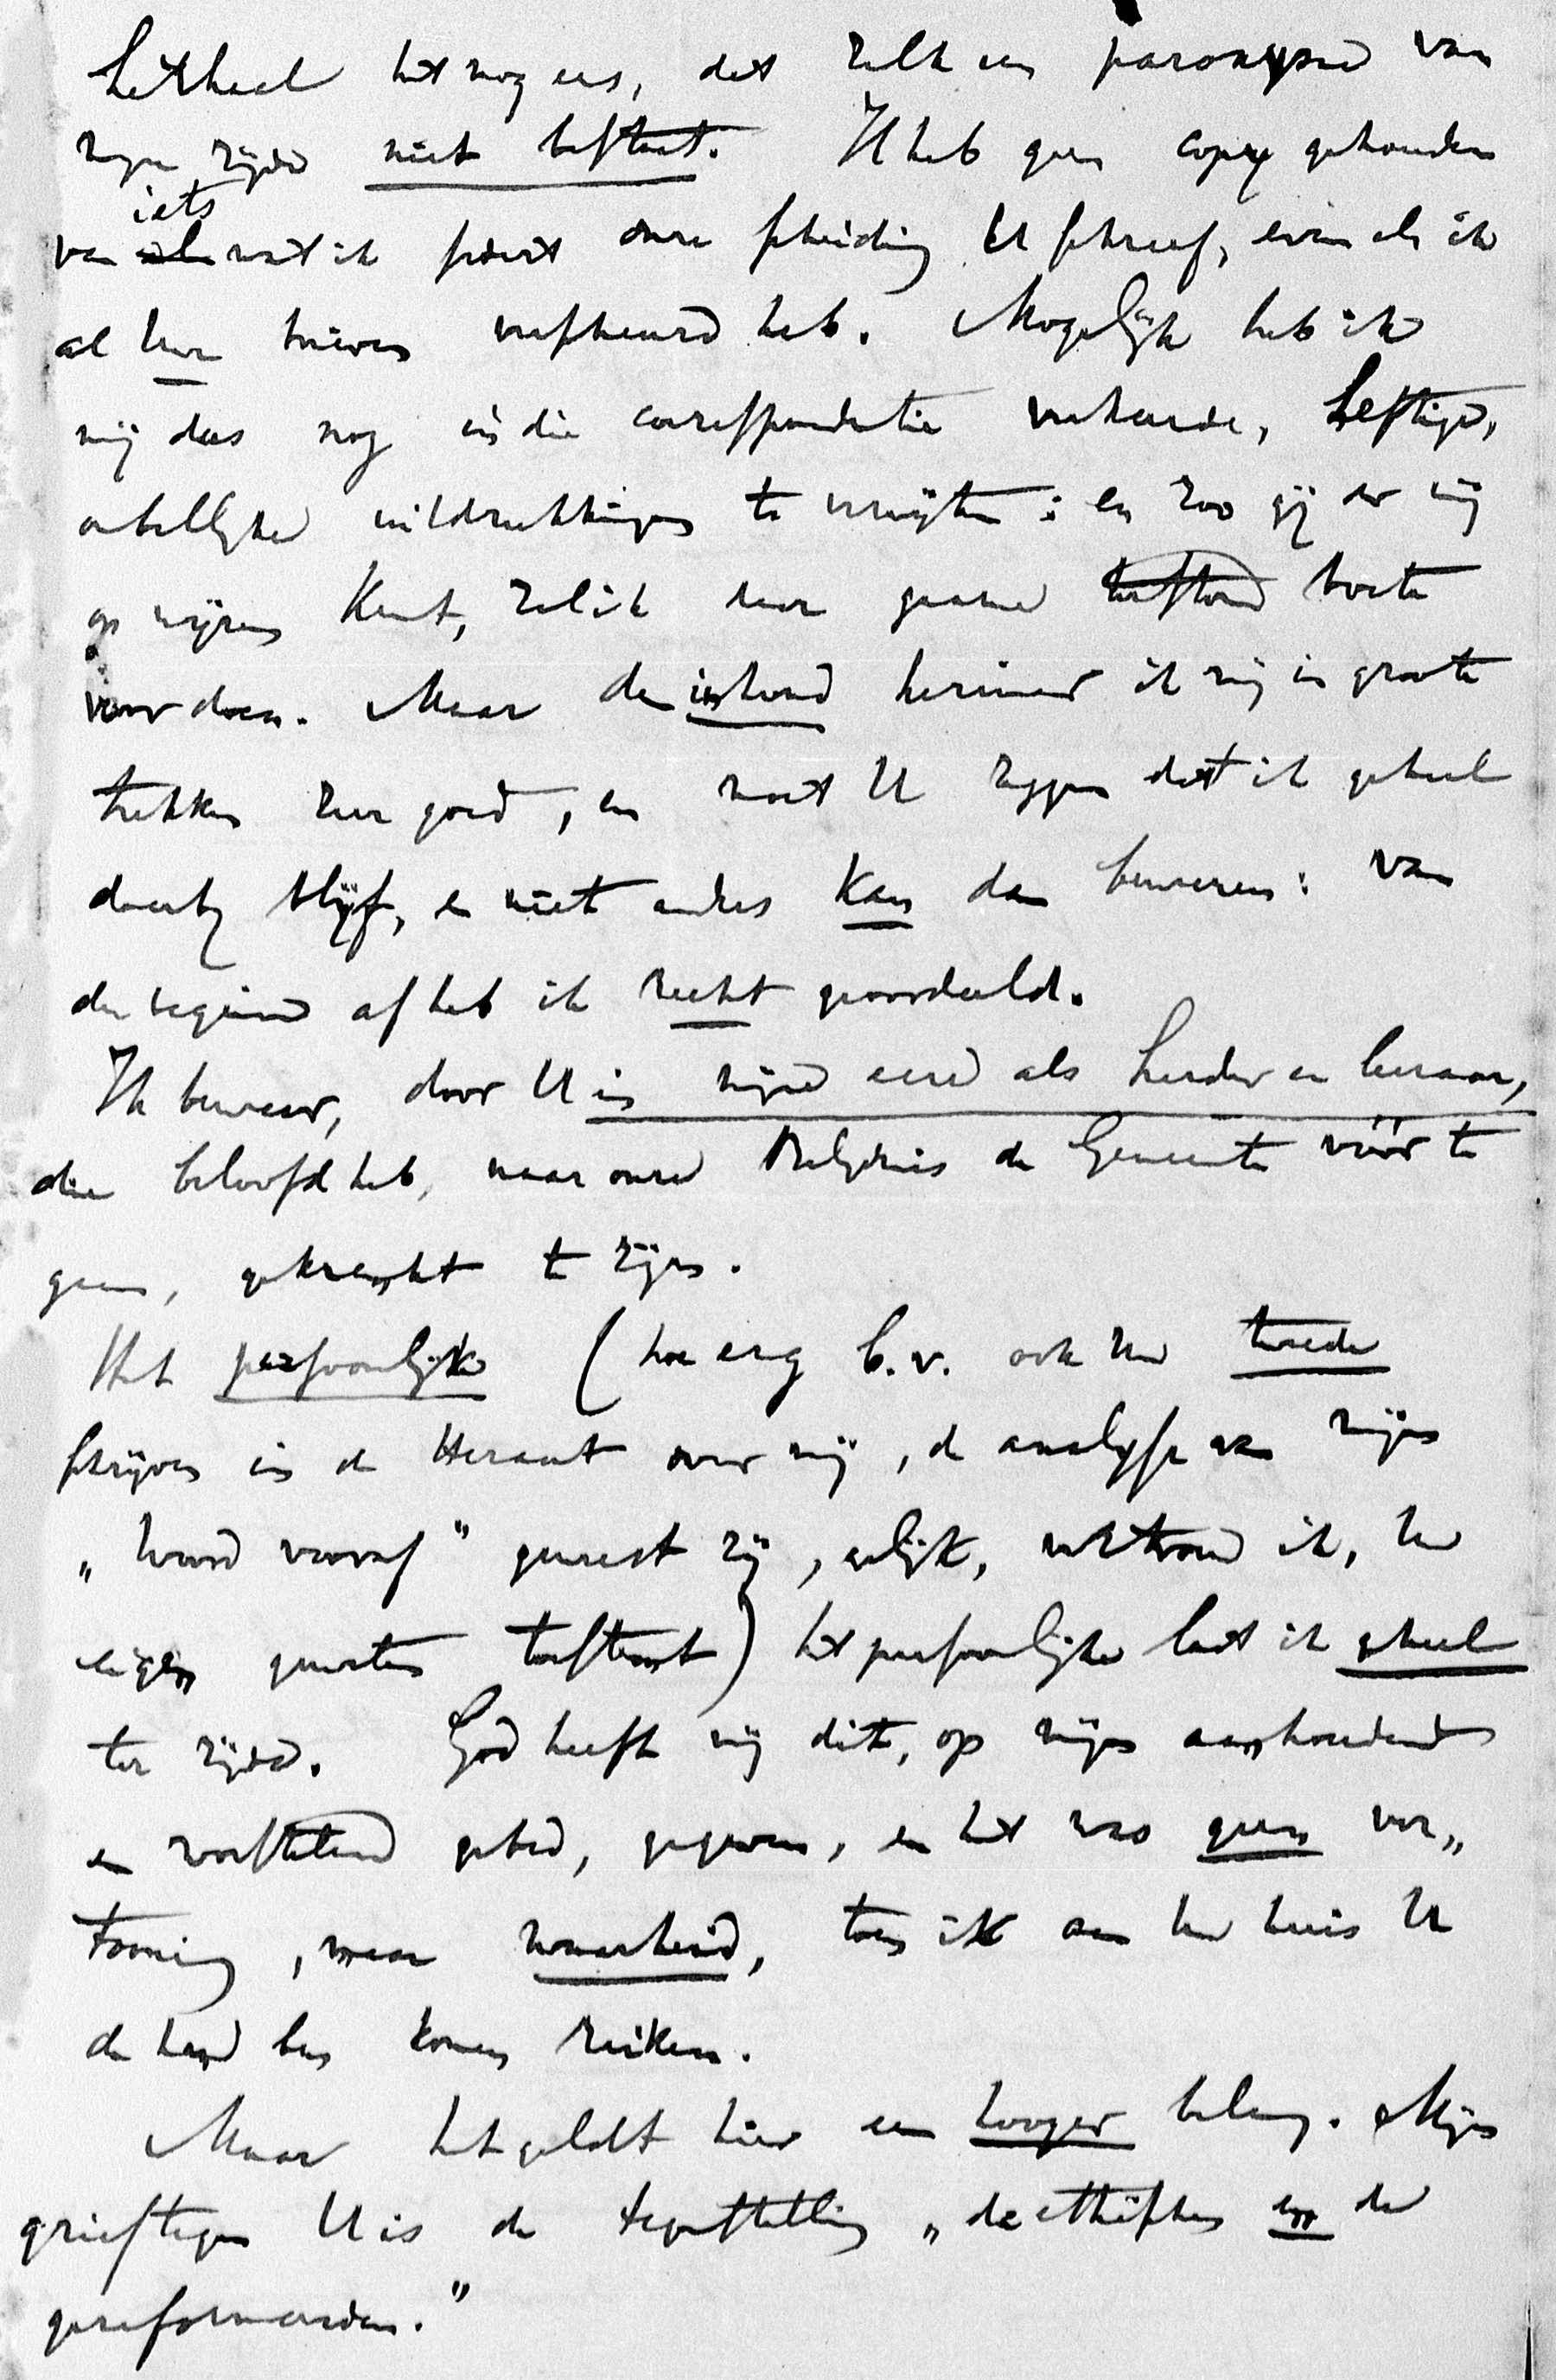 herhaal het nog eens, dat zulk een paroxysme van
zyne zijde niet bestaat. Ik heb geen copy gehouden
van iets wat ik sedert onze scheiding U schreef, even als ik
al Uwe brieven verscheurd heb. Mogelijk heb ik
mij dus nog in die correspondentie verkeerde, heftige,
onbillyke uitdrukkingen te verwijten: en zoo gij er mij
op wijzen kunt, zal ik daar gaarne boete
voor doen. Maar den inhoud herinner ik mij in groote
trekken zeer goed, en moet U zeggen dat ik geheel
daarby blijf, en niet anders kan dan beweren: van
den beginne af heb ik recht geoordeeld.
Ik beweer, door U in mijne eere als herder en leeraar,
die beloofd heb, naar onze Belydenis de Gemeente vóór te
gaan, gekrenkt te zijn.
Het persoonlijke (hoe erg b.v. ook Uw tweede
schrijven in de Heraut over mij, de analyse van mijn
„Woord vooraf" geweest zij, gelijk, vertrouw ik, Uw
eigen geweten toestemt) het persoonlijke laat ik geheel
ter zijde. God heeft mij dit, op mijn aanhoudend
en worstelend gebed, gegeven, en het was geen ver„
tooning, maar waarheid, toen ik aan Uw huis U
de hand ben komen reiken.
Maar het geldt hier een hooger belang. Mijn
grief tegen U is de tegenstelling „de ethischen en de
gereformeerden."